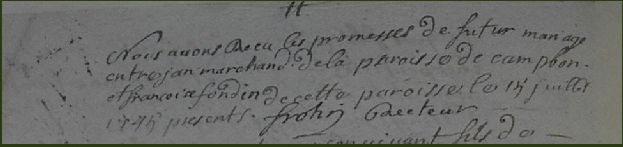 Nous avons Recu les promesses de futur mariage
entre jan marchand de la paroisse de campbon.
et francoise fondin de cette paroisse le 14 juillet
1745 presents. frohy Recteur
fils de